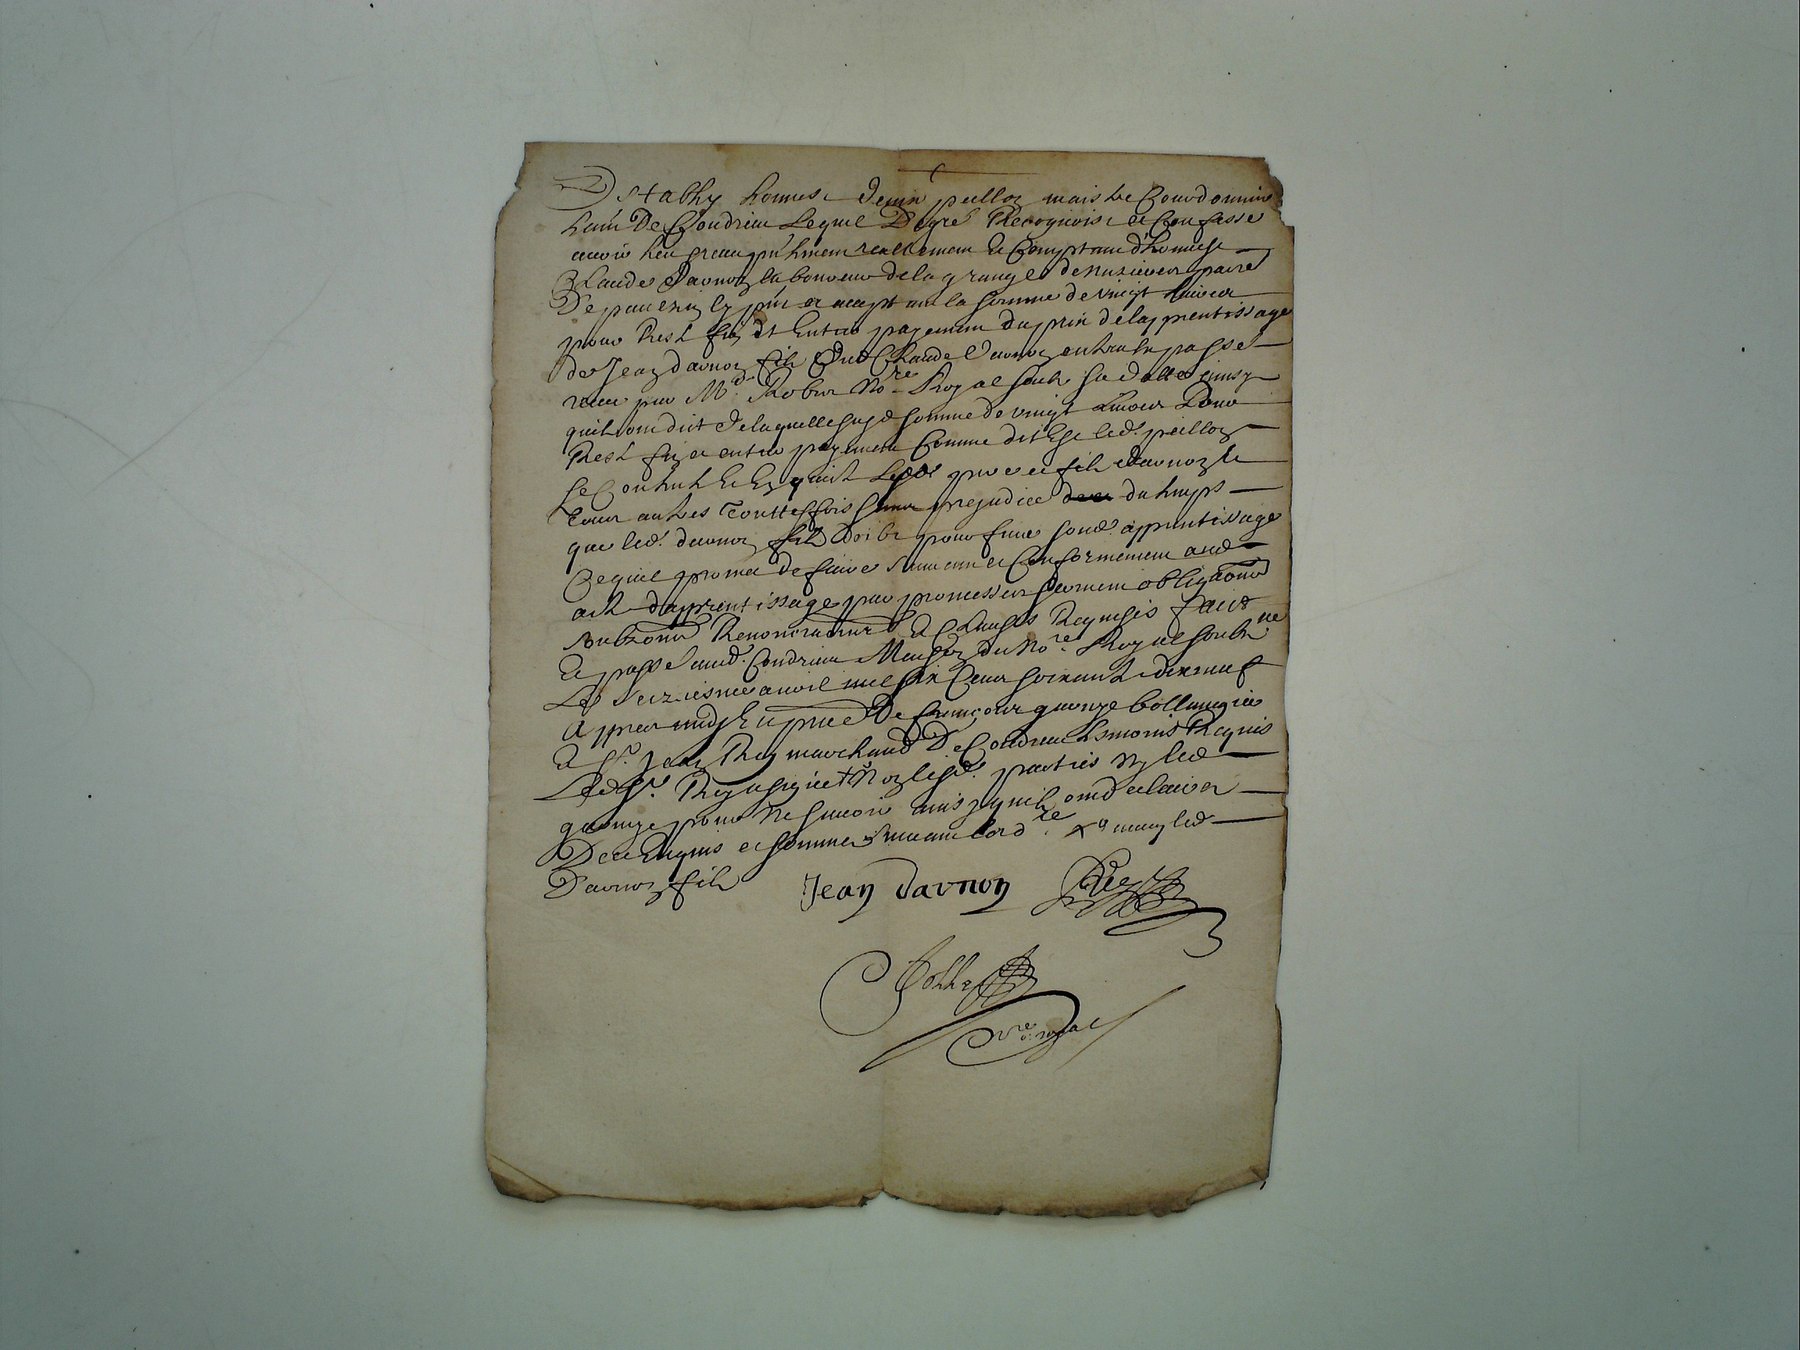 Estably honneste Jemin peilloz maistre Courdonnier
hatn De Condrieu Lequel De gré Recognoist et Confesse
avoir heu receu presentement reallement et Comptant d'honneste
Claude Davnoz laboureur de la grange de
De pavezin cy pnt et acceptant la somme de vingt Livres
pour Reste fin et Entier payement du prix de lapprentissage
de Jean davnoz filz dud Claude Davnoz entreulx passé
receu par Mre Robert Nore Royal soubz sa datte ainsy
quilz ont dict de laquelle susd somme de vingt Livres Pour
Reste fin et entier payement Comme dit Est led. peilloz
se Contente et En quitte lesd. pere et filz davnoz et
tous autres Touttesfois sans prejudice du temps
que led. davnoz filz doibt pour finir sond. apprentissage
Ce quil promet de faire suivant et Conformement aud
acte dapprentissage par promesses serment obligaons
soubzons Renonciaons et Clauses Requises faict
et passé aud. Condrieu Maison du Nore Royal soubzne
Le seiziesme avril mil six Cens soixante dixneuf
Appres midy En pnce De francois quonze bollangier
et Sr. Jean Rey marchand De Condrieu tesmoins Requis
Led Sr. Rey a signé Non lesd. parties Ny led
quonze pour ne scavoir ainsy quilz ont declairer
De ce Enquis et sommes suivant lordre. Xa may led
Davnoz filz
Jean davnon
Rey
Nre royal